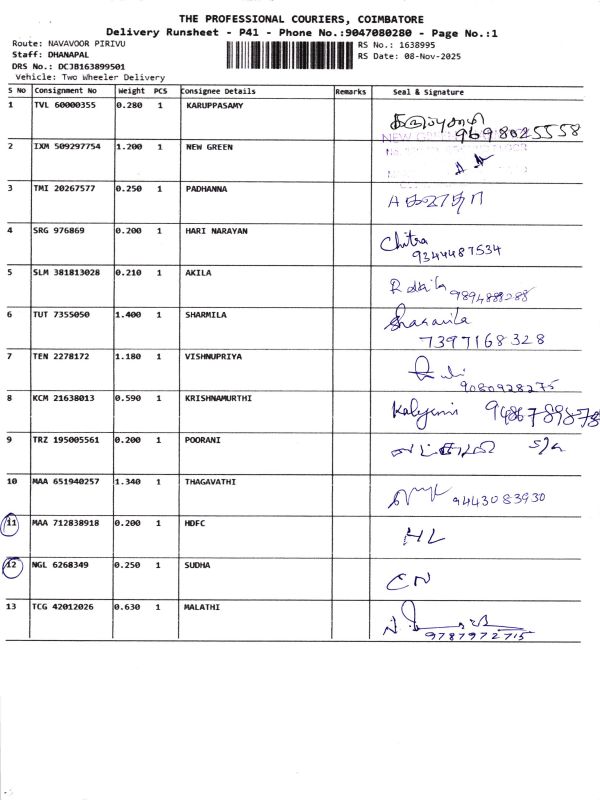 THE PROFESSIONAL COURIERS, COIMBATORE
Delivery Runsheet - P41 - Phone No.:9047080280 - Page No.:1
Route: NAVAVOOR PIRIVU
RS No.: 1638995
Staff: DHANAPAL
RS Date: 08-Nov-2025
DRS No.: DCJB163899501
Vehicle: Two Wheeler Delivery
S No Consignment No Weight PCS Consignee Details Remarks Seal & Signature
1 TVL 60000355 0.280 1 KARUPPASAMY
9698025558
2 IXM 509297754 1.200 1 NEW GREEN
3 TMI 20267577 0.250 1 PADHANNA
4 SRG 976869 0.200 1 HARI NARAYAN Chitra
9344487534
5 SLM 381813028 0.210 1 AKILA
6 TUT 7355050 1.400 1 SHARMILA
7397168328
7 TEN 2278172 1.180 1 VISHNUPRIYA
9080928275
8 KCM 21638013 0.590 1 KRISHNAMURTHI
9 TRZ 195005561 0.200 1 POORANI
10 MAA 651940257 1.340 1 THAGAVATHI
9443083930
11 MAA 712838918 0.200 1 HDFC HL
12 NGL 6268349 0.250 1 SUDHA CN
13 TCG 42012026 0.630 1 MALATHI
9787972715